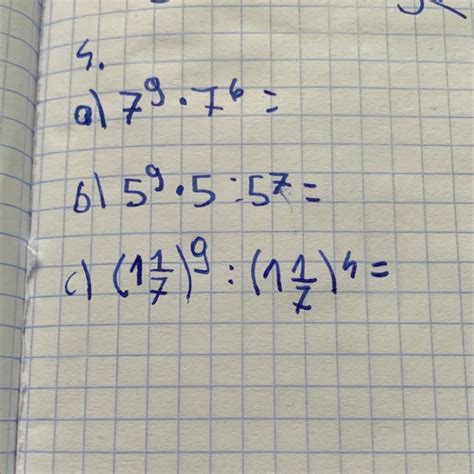 4.
a) 7⁹ · 7⁶ =
b) 5⁹ · 5 : 5⁷ =
c) (1 1/7)⁹ : (1 1/7)⁴ =